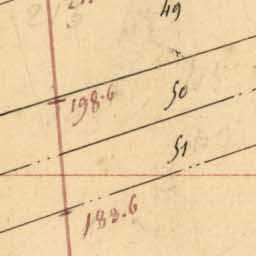 49
198.6
50
51
183.6